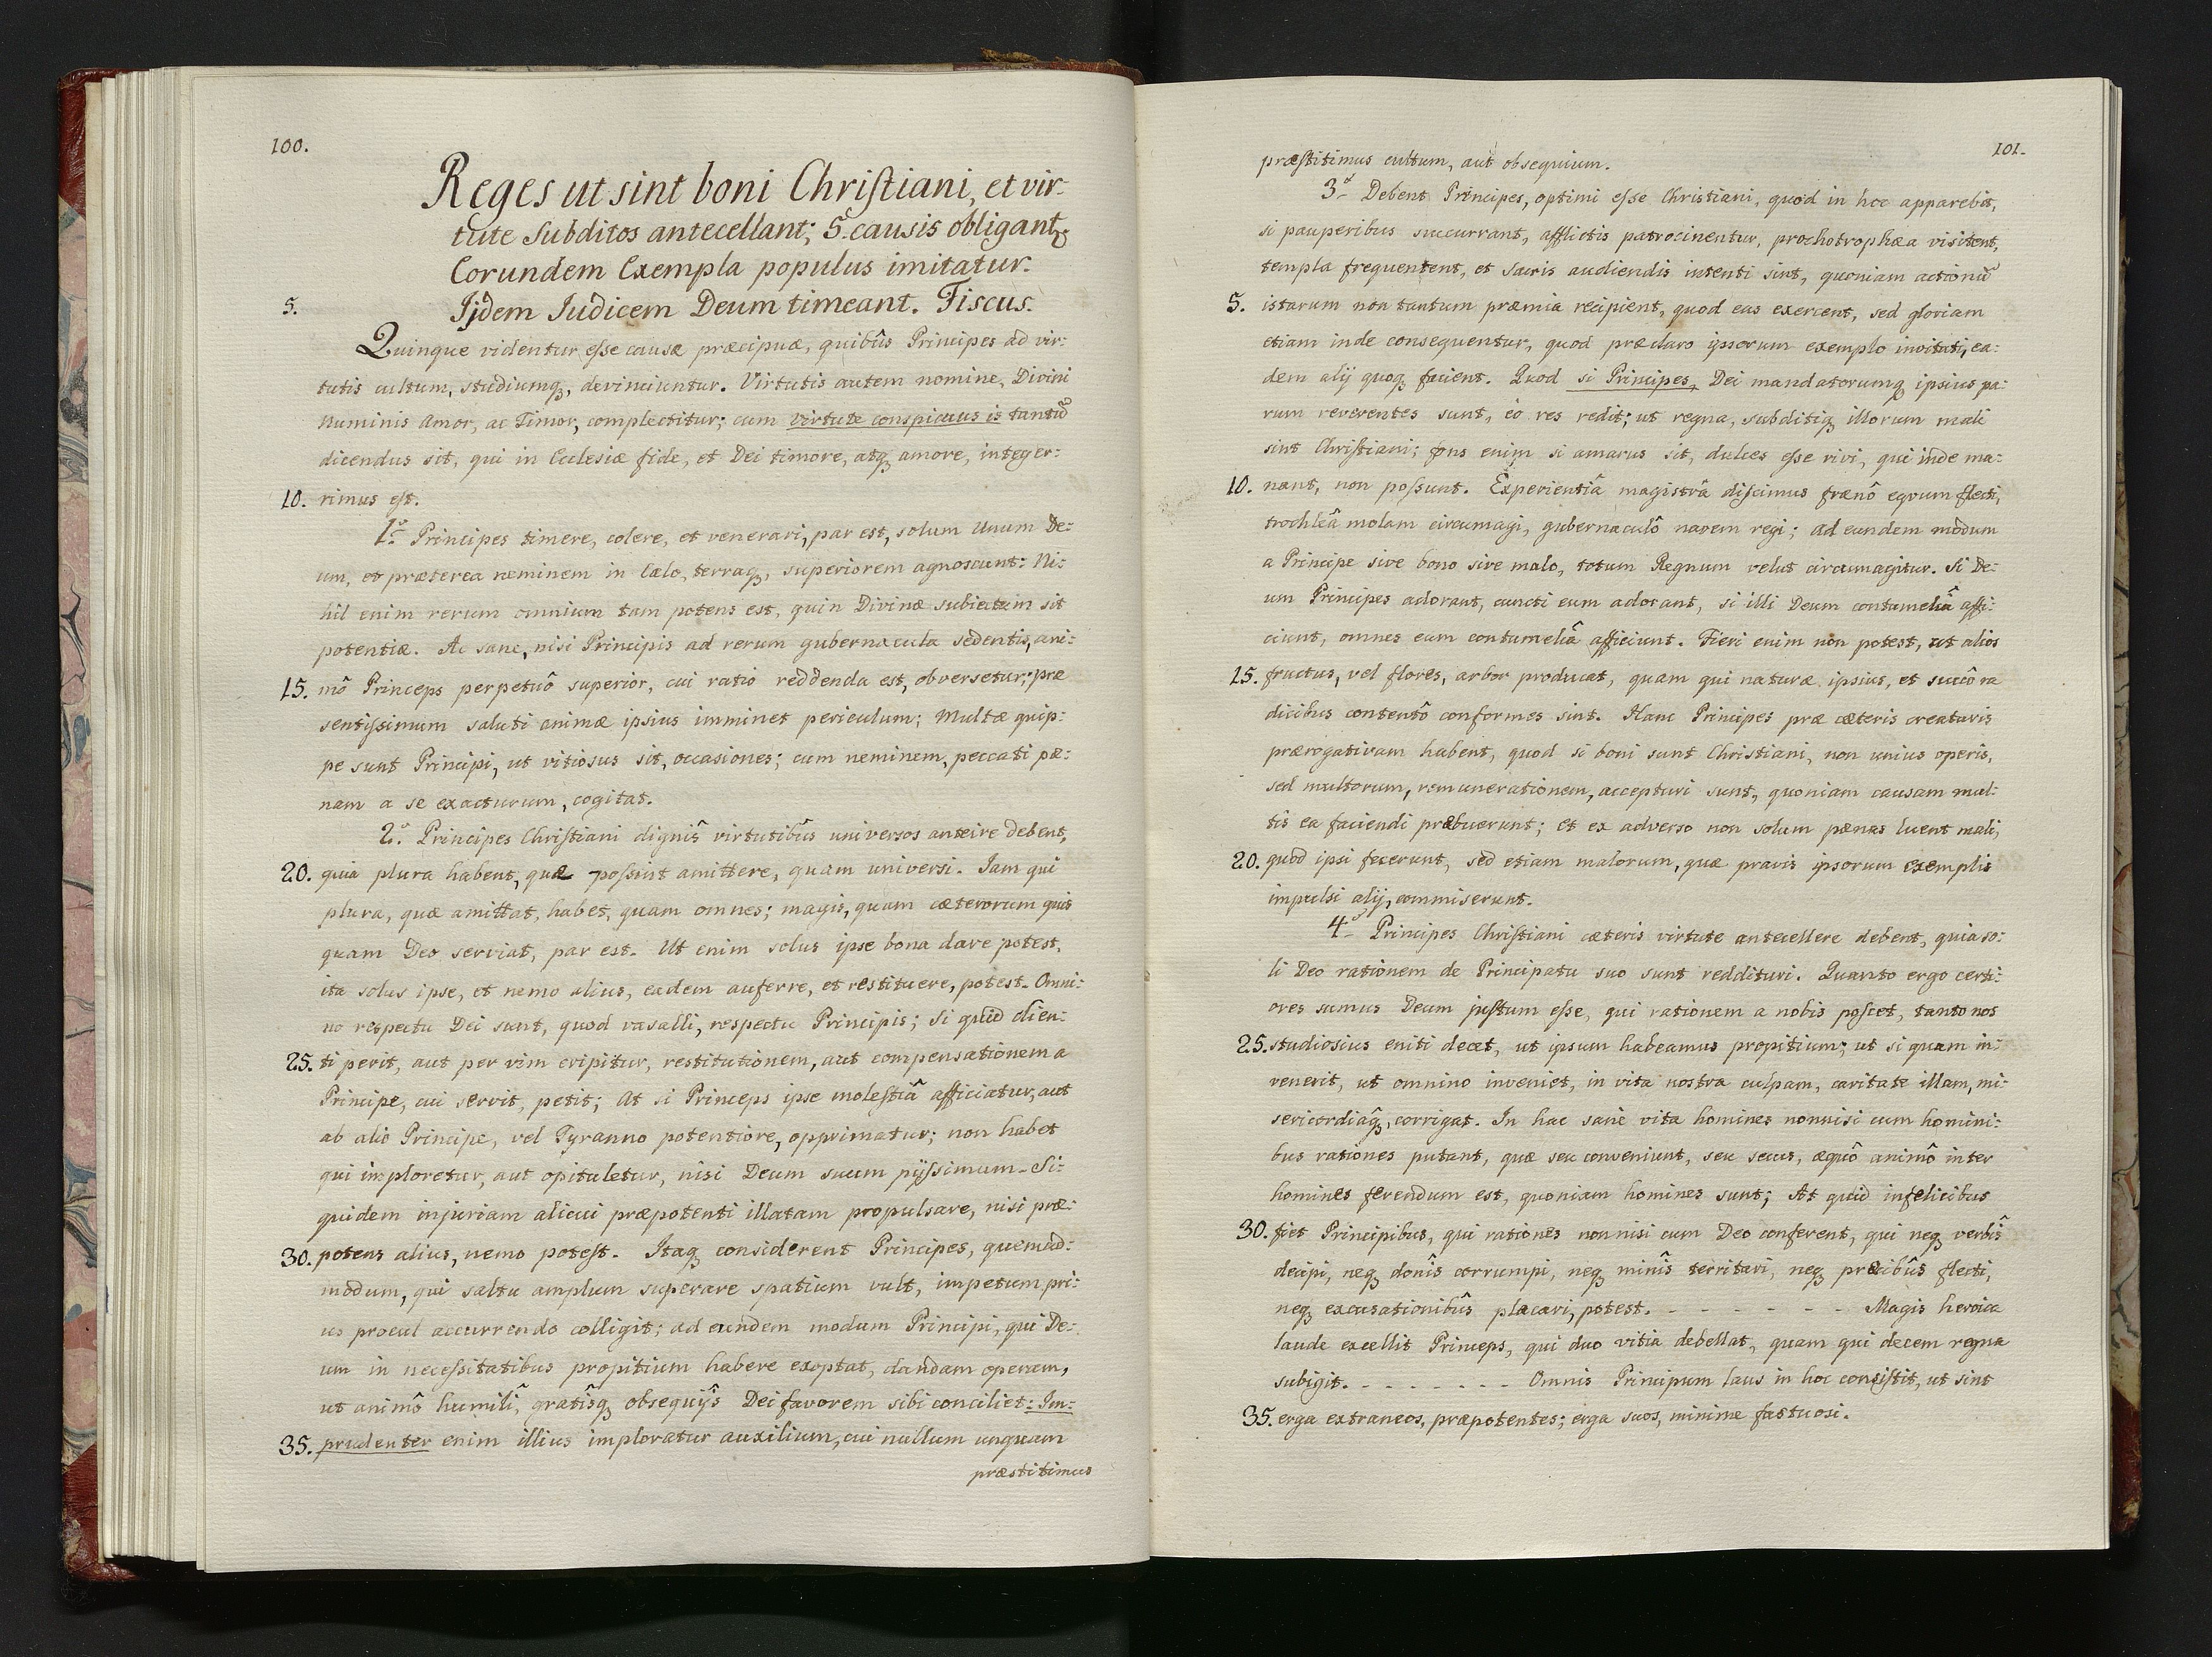 100.
Reges ut sint boni Chriſtiani, et vir-
tute Subditos antecellant; 5. causis obligantꝫ
Eorundem Exempla populus imitatur.
5. Ijdem Iudicem Deum timeant. Fiscus.
Quinque videntur eſse causæ præcipuæ, quibûs Principes ad vir:
tutis cultum, studiumqꝫ, devinciuntur. Virtutis autem nomine, Divini
Numinis Amor, ac Timor, complectitur; cum virtute conspicuus is tantũ
dicendus sit, qui in Ecclesiæ fide, et Dei timore, atqꝫ amore, integer:
10. rimus eſt.
1.º Principes timere, colere, et venerari, par est, solum Unum De:
um, et præterea neminem in Cælo, terraqꝫ, superiorem agnoscunt: Ni:
hil enim rerum omnium tam potens est, quin Divinæ subiectum sit
potentiæ. Ac sane, nisi Principis ad rerum gubernacula sedentis, ani:
15. mô Princeps perpetuô superior, cui ratio reddenda est, obversetur; præ
sentiſsimum saluti animæ ipsius imminet periculum; Multæ quip:
pe sunt Principi, ut vitiosus sit, occasiones; cum neminem, peccati pæ:
nam a se exacturum, cogitat.
2.º Principes Chriſtiani dignis̑ virtutibûs universos anteire debent,
20. quia plura habent, quæ poſsint amittere, quam universi. Iam qui
plura, quæ amittat, habet, quam omnes; magis, quam cæterorum quis
quam Deo serviat, par est. Ut enim solus ipse bona dare potest,
ita solus ipse, et nemo alius, eadem auferre, et restituere, potest. Omni:
no respectu Dei sunt, quod vasalli, respectu Principis; Si quid clien:
25. ti perit, aut per vim eripitur, restitutionem, aut compensationem a
Principe, cui servit, petit; At si Princeps ipse moleſtiâ afficiatur, aut
ab alio Principe, vel Tyranno potentiore, opprimatur; non habet
qui imploretur, aut opituletur, nisi Deum suum pijſsimum. Si:
quidem injuriam alicui præpotenti illatam propulsare, nisi præ:
30. potens alius, nemo poteſt. Itaqꝫ considerent Principes, quemad:
modum, qui saltu amplum superare spatium vult, impetum pri:
us procul accurrendo colligit; ad eundem modum Principi, qui De:
um in neceſsitatibus propitium habere exoptat, dandam operam,
ut animô humilî, gratîsqꝫ obsequijs̑ Dei favorem sibi conciliet: Im:
35. prudenter enim illius imploratur auxilium, cui nullum unquam
præstitimus
101.
præſtitimus cultum, aut obsequium.
3.º Debent Principes, optimi eſse Christiani, quod in hoc apparebit,
si pauperibus succurrant, afflictis patrocinentur, prochotrophæa visitent,
templa frequentent, et sacris audiendis intenti sint, quoniam actionũ
5. istarum non tantum præmia recipient, quod eas exercent, sed gloriam
etiam inde consequentur, quod præclaro ipsorum exemplo invitati, ea:
dem alij quoqꝫ facient. Quod si Principes, Dei mandatorumqꝫ ipsius pa:
rum reverentes sunt, eò res redit; ut regna, subditiqꝫ illorum mali
sint Chriſtiani; fons enim si amarus sit, dulces eſse rivi, qui inde ma:
10. nant, non poſsunt. Experientiâ magistrâ diſcimus frænô eqvum flecti,
trochleâ molam circumagi, gubernaculô navem regi; Ad eundem modum
a Principe sive bono sive malo, totum Regnum velut circumagitur. Si De:
um Principes adorant, cuncti eum adorant, si illi Deum contumeliâ affi:
ciunt, omnes eum contumeliâ afficiunt. Fieri enim non potest, ut alios
15. fructus, vel flores, arbor producat, quam qui naturæ ipsius, et succô ra
dicibus contentô conformes sint. Hanc Principes præ cæteris creaturis
prærogativam habent, quod si boni sunt Christiani, non unius operis,
sed multorum, remunerationem, accepturi sunt, quoniam causam mul:
tis ea faciendi præbuerunt; et ex adverso non solum pænas luent mali,
20. quod ipsi fecerunt, sed etiam malorum, quæ pravis ipsorum exemplis
impulsi alij, commiserunt.
4.º Principes Chriſtiani cæteris virtute antecellere debent, quia so:
li Deo rationem de Principatu suo sunt reddituri. Quanto ergo certi:
ores sumus Deum juſtum eſse, qui rationem a nobis poſcet, tanto nos
25. studiosius eniti decet, ut ipsum habeamus propitium; ut si quam in:
venerit, ut omnino inveniet, in vita nostra culpam, caritate illam, mi:
sericordiaqꝫ, corrigat. In hac sanè vita homines nonnisi cum homini:
bus rationes putant, quæ seu conveniunt, seu secus, æquô animô inter
homines ferendum est, quoniam homines sunt; At quid infelicibus
30. fiet Principibus, qui rationes nonnisi cum Deo conferent, qui neqꝫ verbîs
decipi, neqꝫ donîs corrumpi, neqꝫ minîs territari, neqꝫ precibûs flecti,
neqꝫ excusationibûs placari, potest. - - - - - - - Magis heroica
laude excellit Princeps, qui duo vitia debellat, quam qui decem regna
subigit. - - - - - - - Omnis Principum laus in hoc consiſtit, ut sint
35. erga extraneos, præpotentes; erga suos, minime faſtuosi.